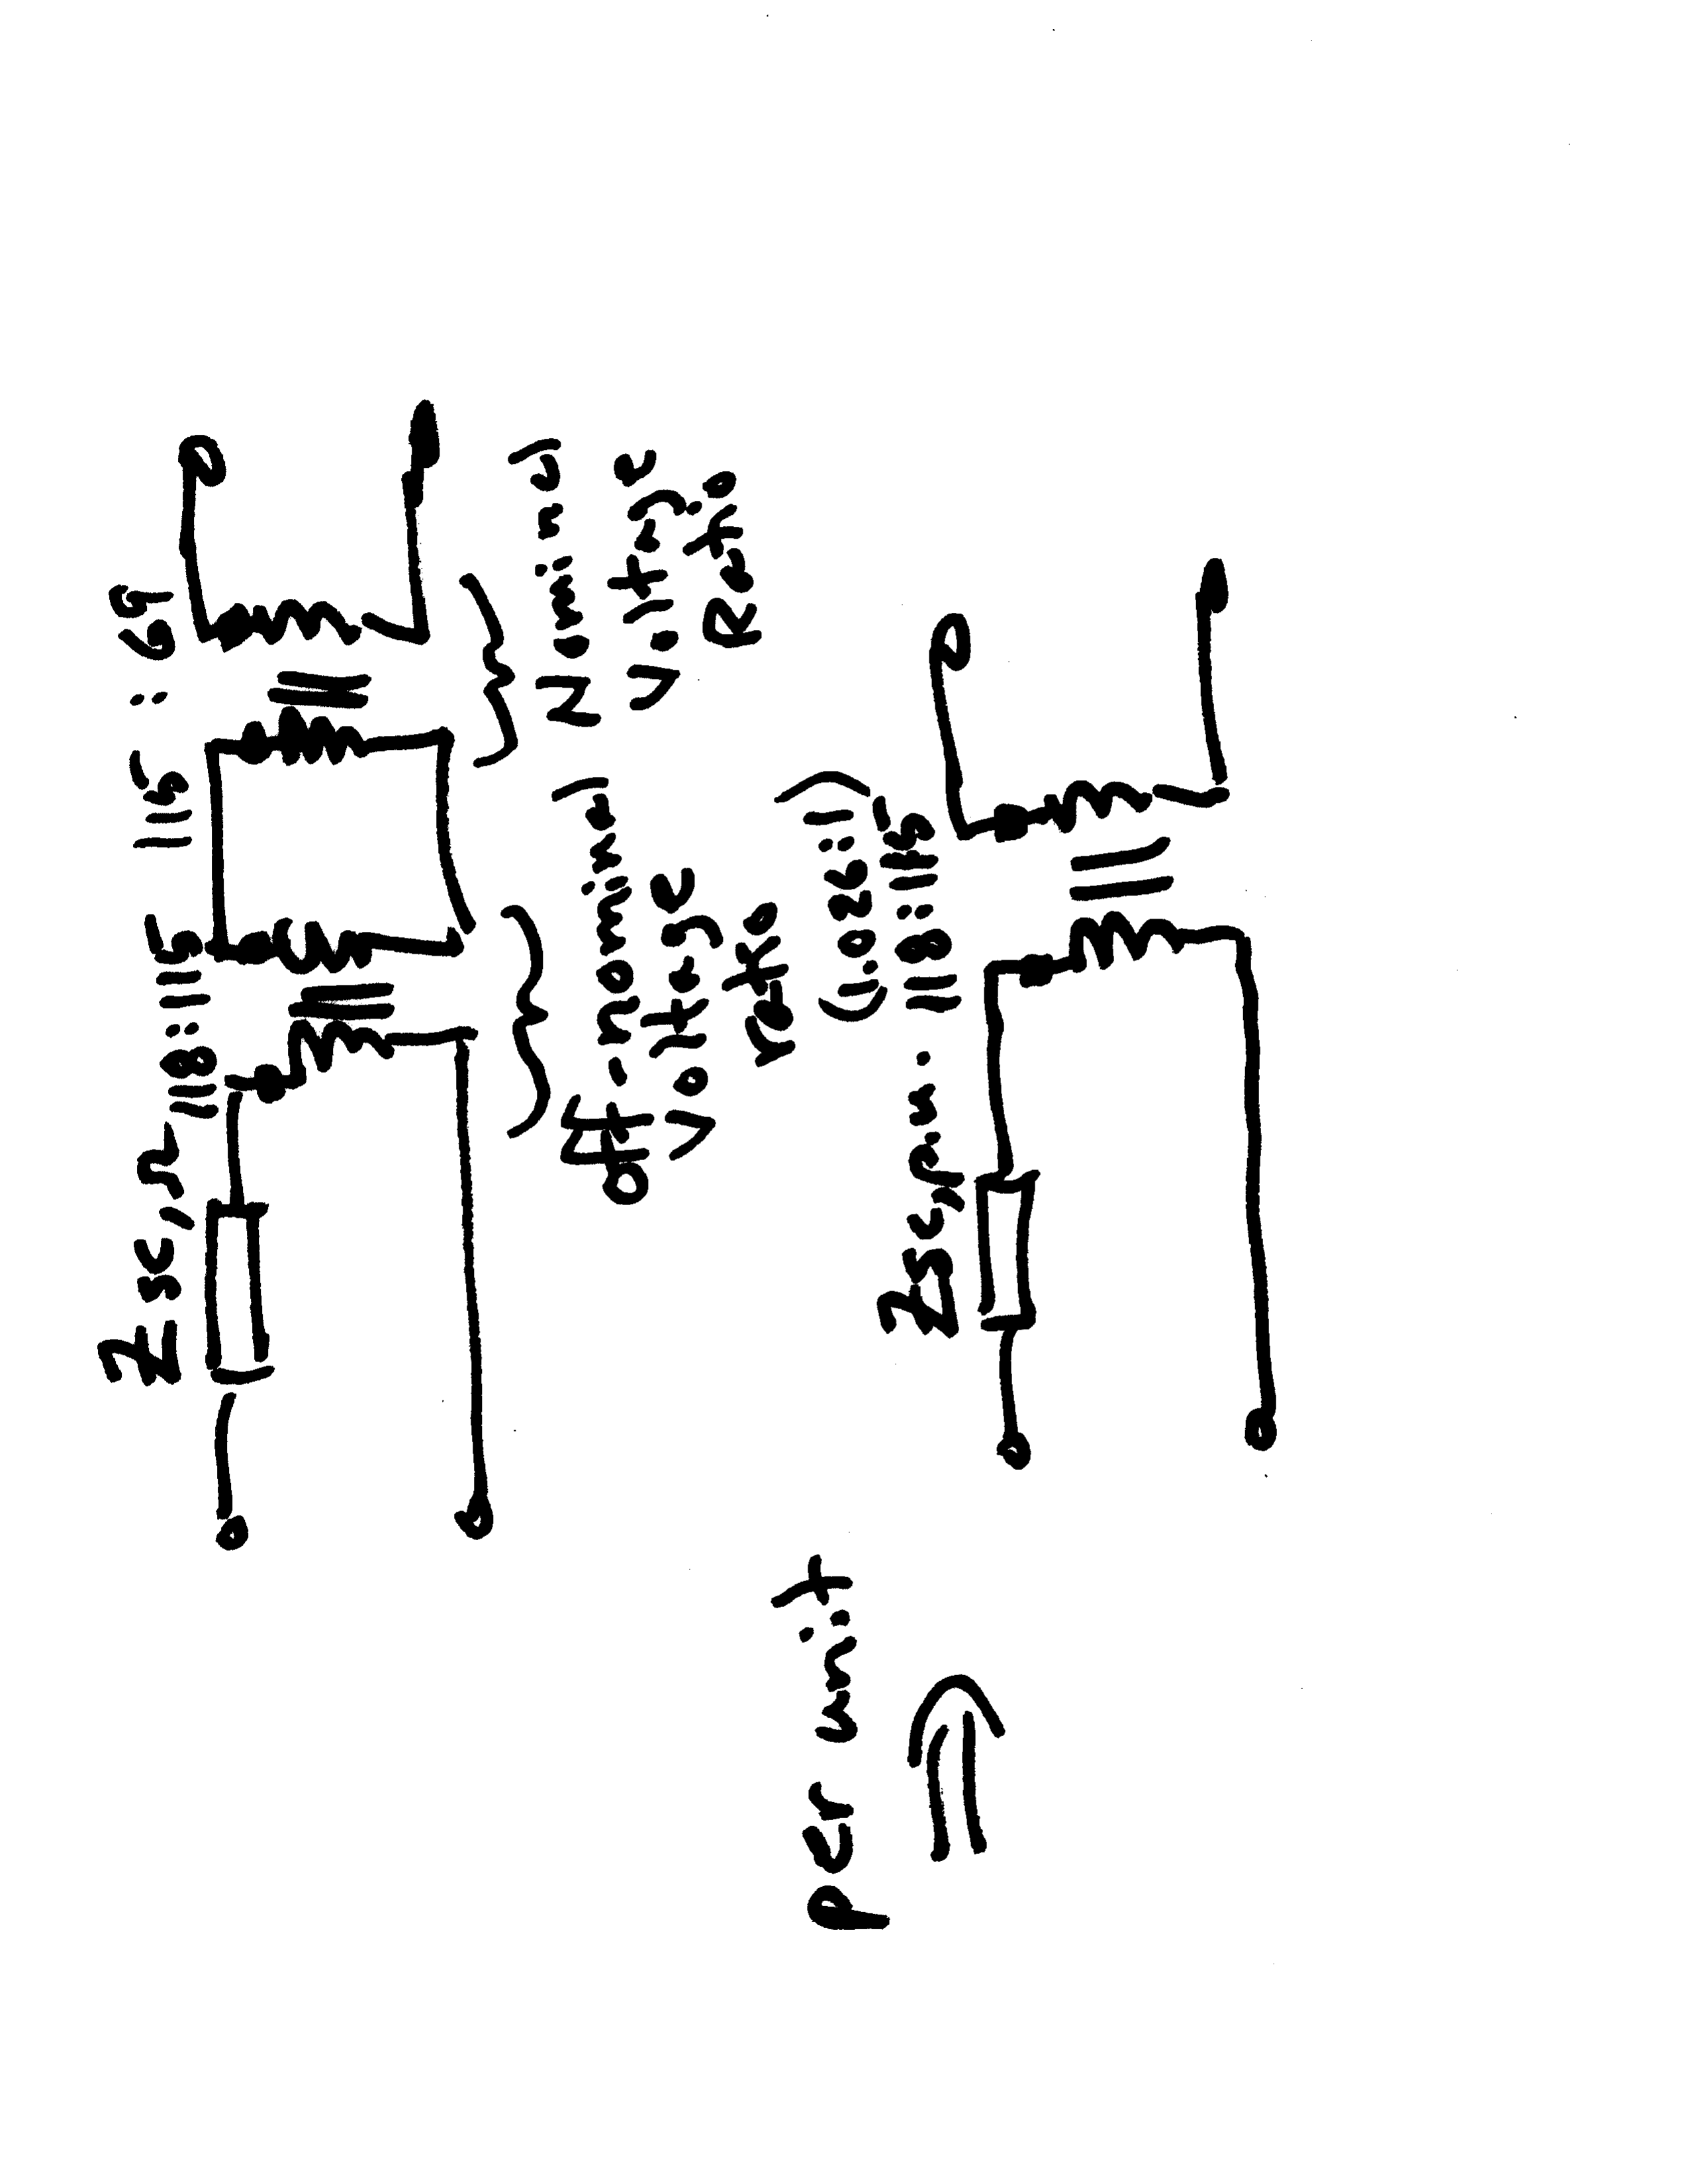 Zsc,Ω 118:115 115 : 69
off-nominal
voltage
ratio
Nominal
Voltage
Ratio
per unit
(1.026:1)
Zsc,p.u. 118:115